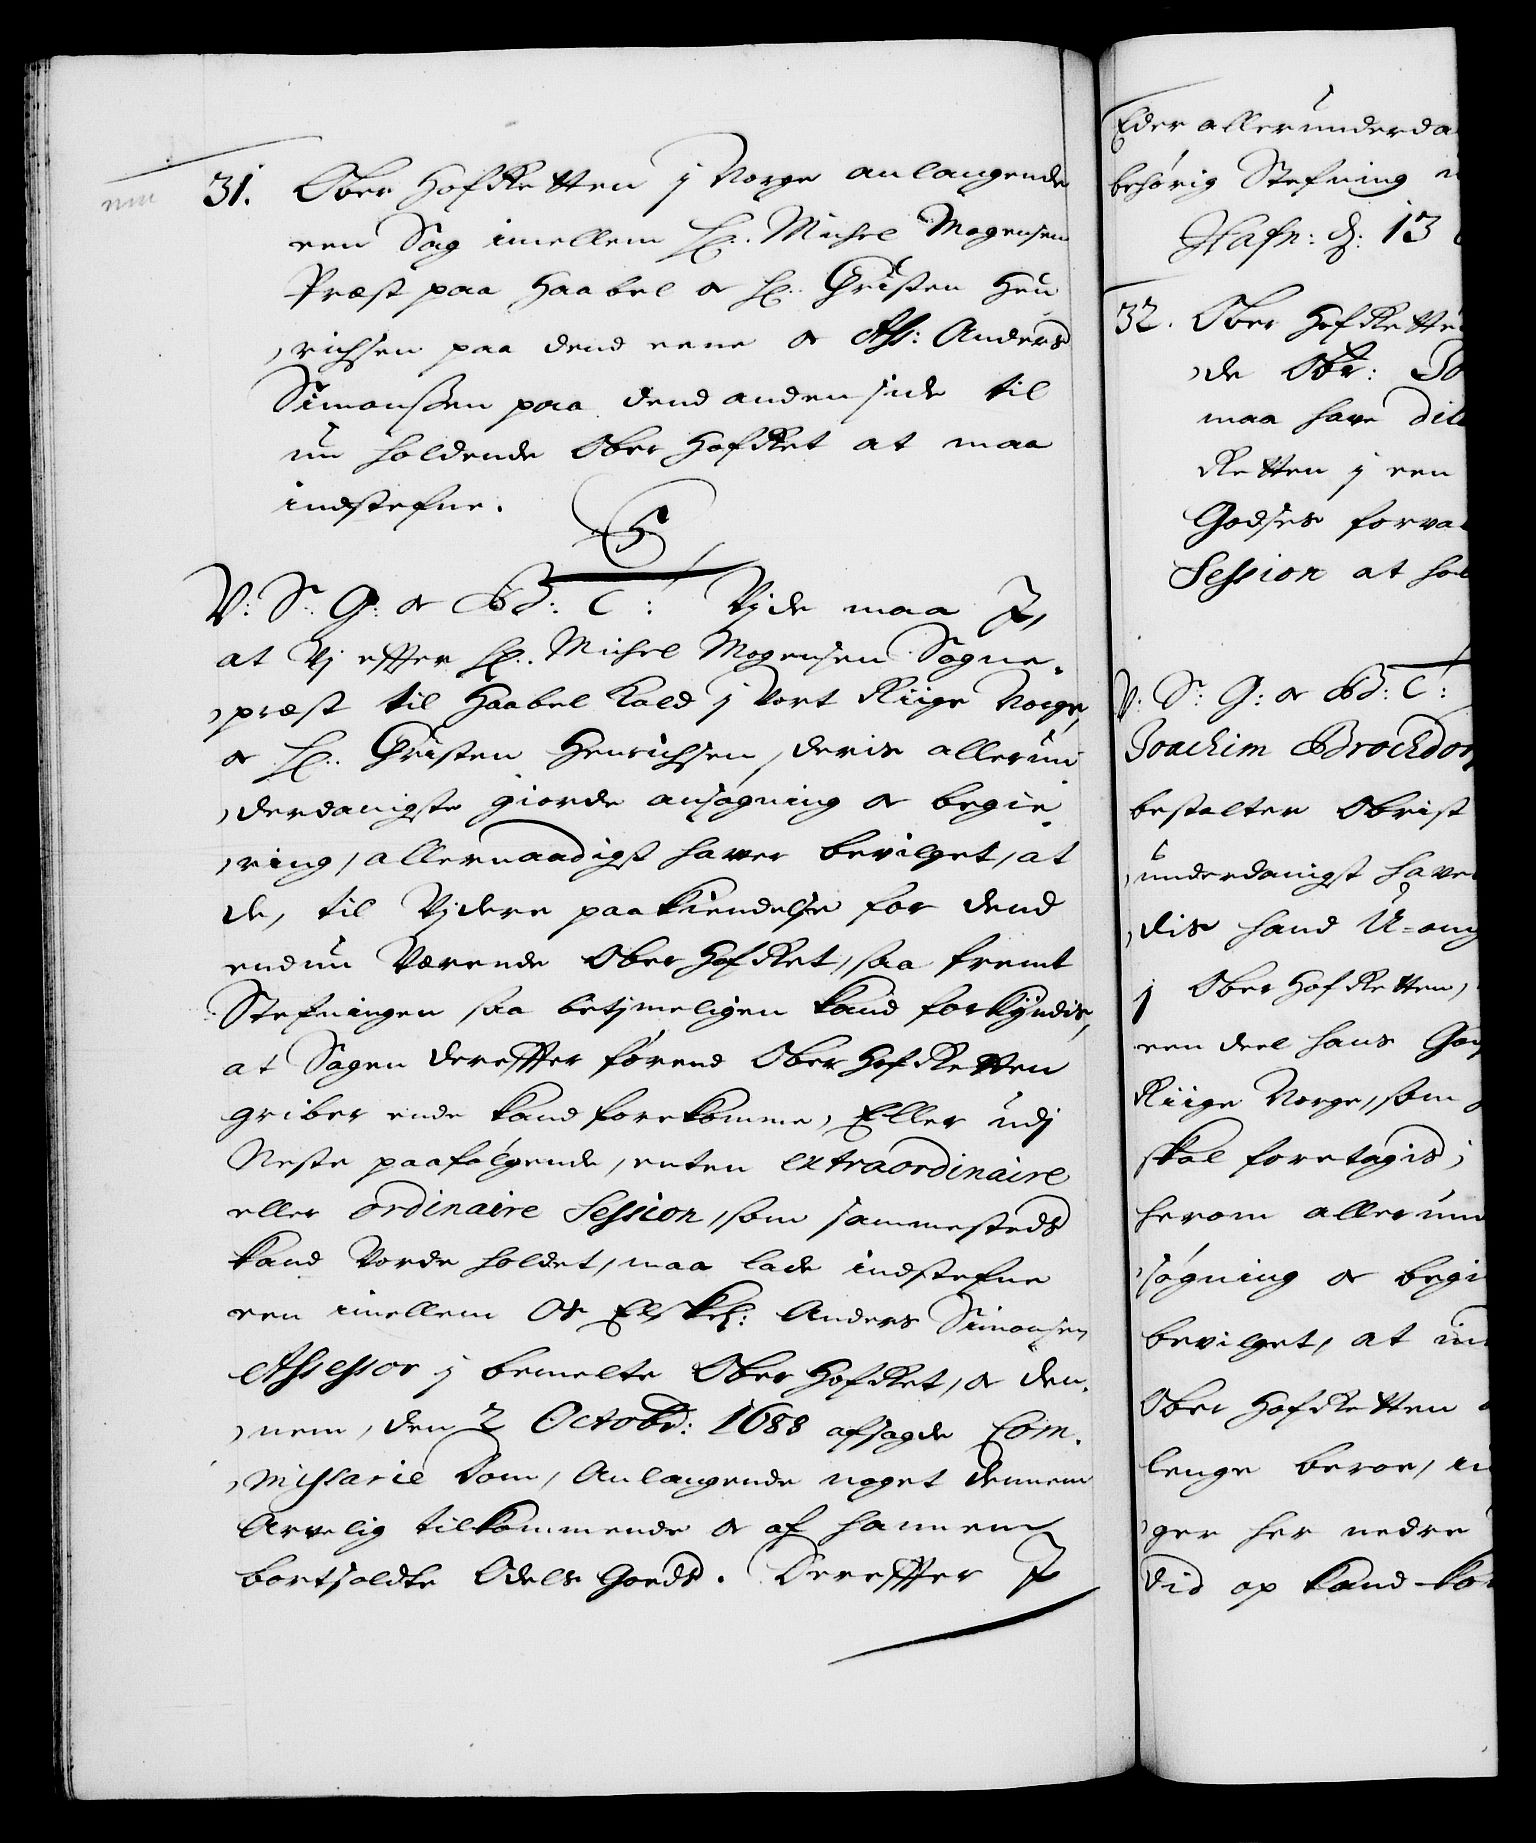 31. Ober Hof Retten j Norge anlangende
een Sag imellem Hr. Michel Mogensen
Præst paa Haabel og Hr. Christen Hen
richsen paa dend eene og Ass: Anders
Simonssen paa dend anden side til
nu holdende Ober HofRet at maa
indstefne.
V: S: G: og Bd: C: Vide maa I,
at Vj effter Hr. Michel Mogensen Sogne-
præst til Haabel Kald j Vort Riige Norge,
og Hr. Christen Henrichsen, deris allerun
derdanigste giorde ansøgning og begie-
ring, allernaadigst haver bevilget, at
de, til Vjdere paakiendelse for dend
endnu Værende Ober HofRet, saa fremt
Stefningen saa betjmeligen kand forkÿndis,
at Sagen dereffter førend Ober HofRetten
griber ende kand forekomme, Eller udj
Neste paafølgende, enten extraordinaire
eller ordinaire Session, som sammesteds
kand Vorde holdet, maa lade indstefne
een imellem Os Elskel: Anders Simonsen
Assessor j bemelte Ober HofRet, og den-
nem, den 2 Octobr: 1688 afsagde Com-
missarie Dom, Anlangende noget dennem
Arvelig tilkommende og af hannem
bortsoldte Odels Goeds. Dereffter I
Eder allerunderda
behørig Stefning
Hafn: d: 13
32. Ober HofRette
de Obr:
maa have
Retten j een
Godses forva
Session at hol
V: S: G: og Bd: C:
Joachim Brockdor
bestalter Obrist
underdanigst have
dis hand U-ang
j Ober HofRetten,
een deel hans
Riige Norge, som
skal foretagis,
herom allerun
søgning og begi
bevilget, at
Ober HofRetten
lenge beroe,
ger her nedre
Vid op kand